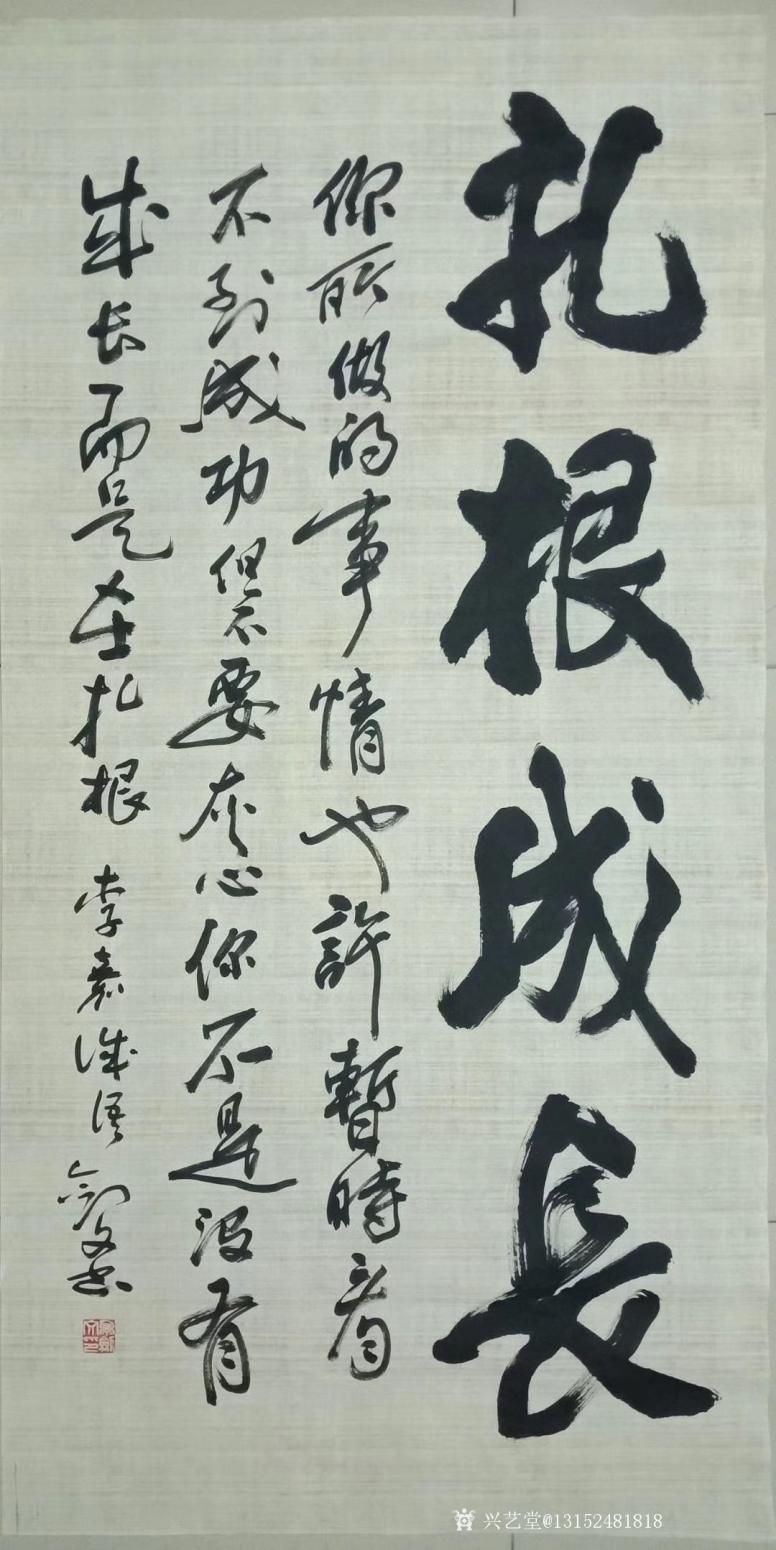 扎根成長
你所做的事情也許暫時看
不到成功但不要灰心你不是沒有
成长而是在扎根 李嘉诚语 剑文书
兴艺堂@13152481818